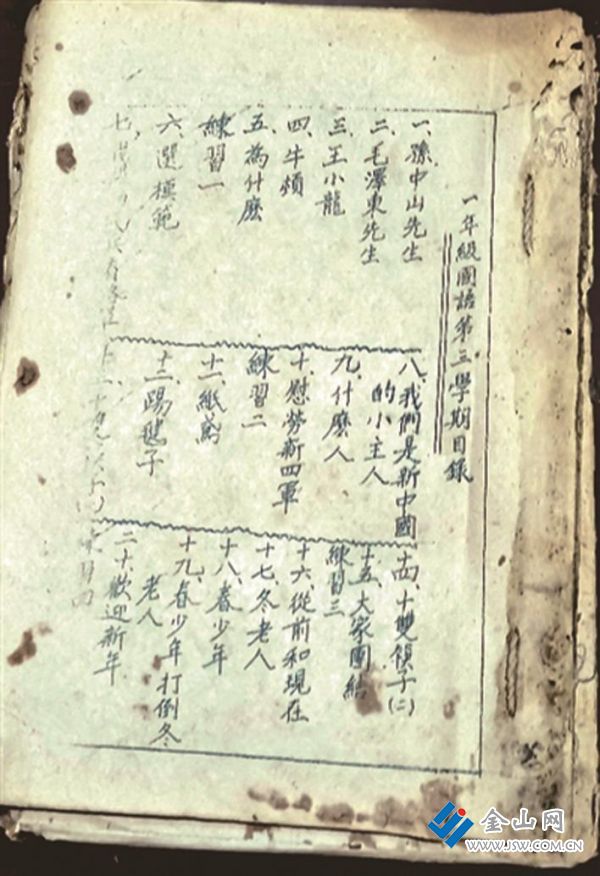 一年級國語第三學期目錄
一、孫中山先生
二、毛澤東先生
三、王小龍
四、牛頓
五、為什麼
練習一
六、選模範
七、
八、我們是新中國
的小主人
九、什麼人
十、慰勞新四軍
練習二
十一、紙鳶
十二、踢毽子
十四、十雙子(二)
十五、大家團結
練習三
十六、從前和現在
十七、冬老人
十八、春少年
十九、春少年打倒冬
老人
二十、歡迎新年
金山网
WWW.JSW.COM.CN